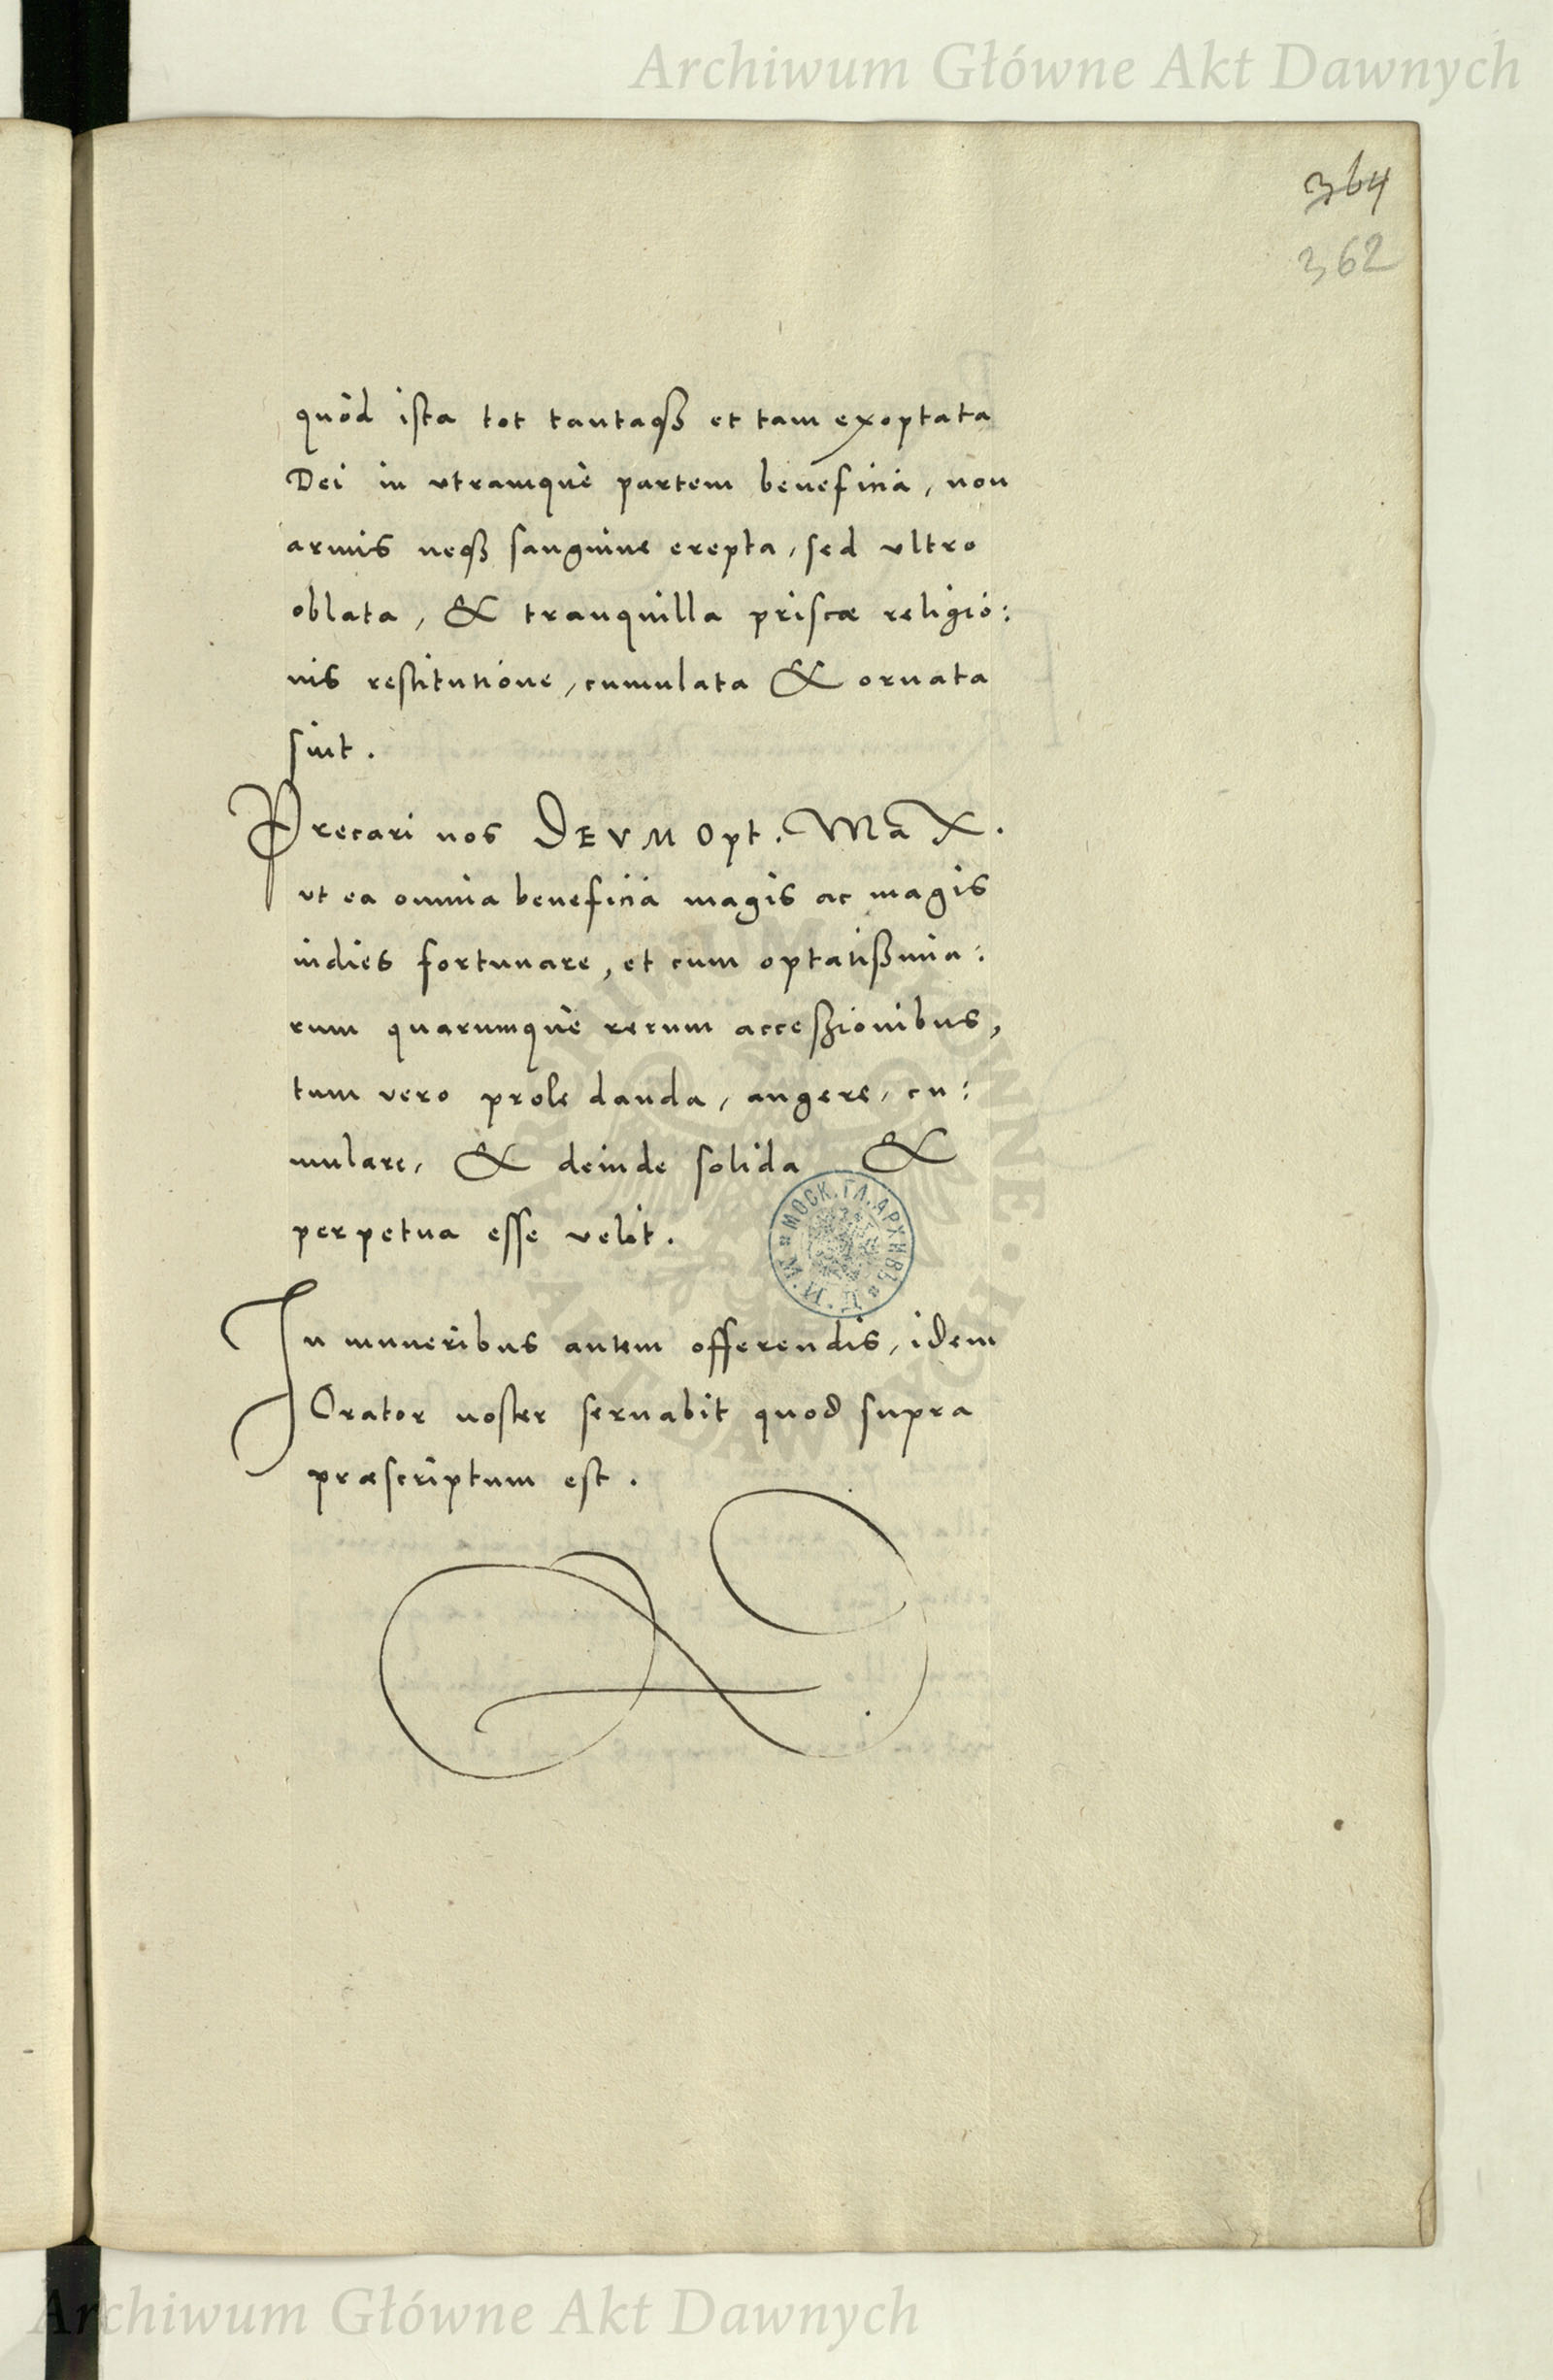 Archiwum Główne Akt Dawnych
364
362
quòd ista tot tantaqȝ et tam exoptata
Dei in vtramquè partem beneficia, non
armis neqȝ sanguine erepta, sed vltro
oblata, & tranquilla priscæ religio:
nis restitutione, cumulata & ornata
sint.
Precari nos DEVM Opt. MaX.
vt ea omnia beneficia magis ac magis
indies fortunare, et cum optatißima:
rum quarumquè rerum acceßionibus,
tum vero prole danda, augere, cu:
mulare, & deinde solida &
perpetua esse velit.
In muneribus autem offerendis, idem
Orator noster seruabit quod supra
præscriptum est.
МОСК. ГЛ. АРХИВЪ М.И.Д.
ARCHIWUM GŁÓWNE AKT DAWNYCH
Archiwum Główne Akt Dawnych